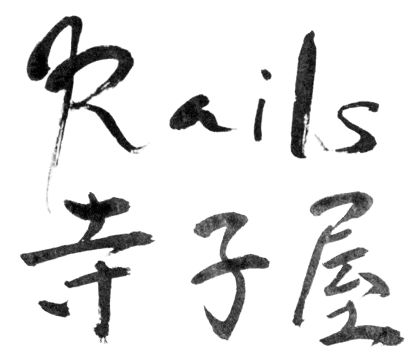 Rails
寺子屋